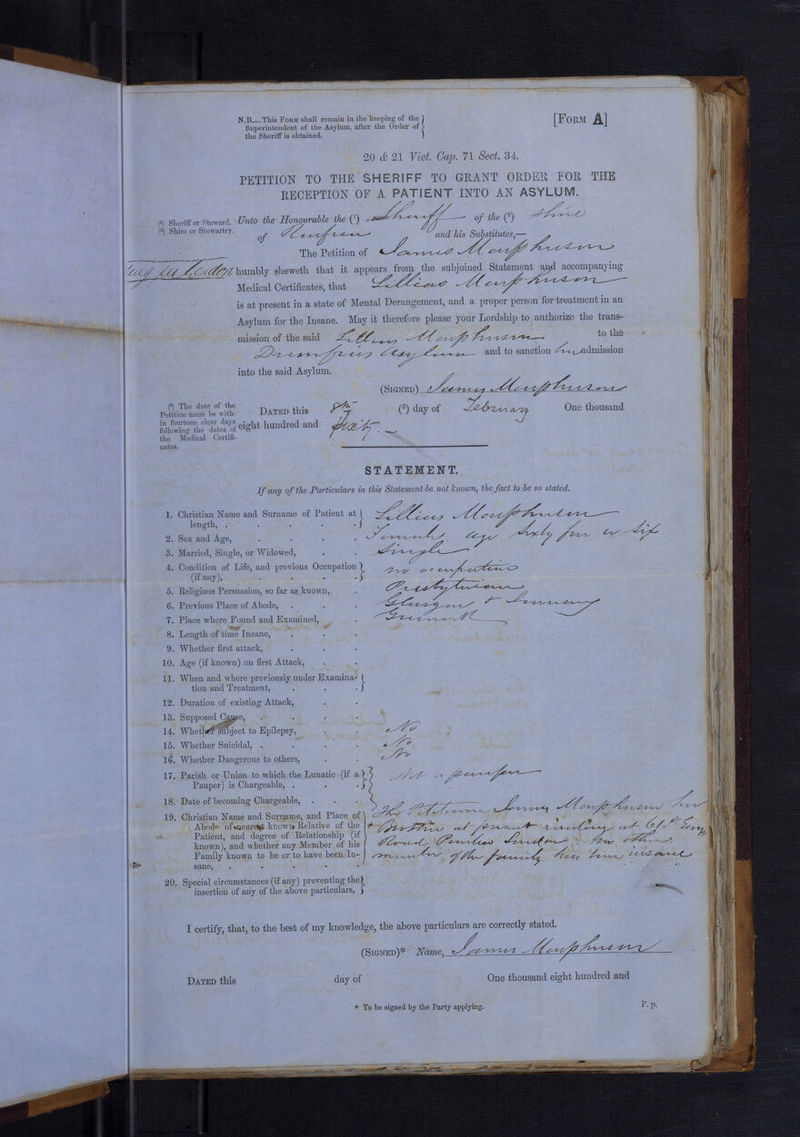 N.B.—This FORM shall remain in the keeping of the
Superintendent of the Asylum, after the Order of
the Sheriff is obtained.
[FORM A]
20 & 21 Vict. Cap. 71 Sect. 34.
PETITION TO THE SHERIFF TO GRANT ORDER FOR THE
RECEPTION OF A PATIENT INTO AN ASYLUM.
(¹) Sheriff or Steward.
(²) Shire or Stewartry.
Unto the Honourable the (¹) Sheriff of the (²) Shire
of Renfrew and his Substitutes,—
The Petition of James Macpherson
humbly sheweth that it appears from the subjoined Statement and accompanying
Medical Certificates, that Lillias Macpherson
is at present in a state of Mental Derangement, and a proper person for treatment in an
Asylum for the Insane. May it therefore please your Lordship to authorize the trans-
mission of the said Lillias Macpherson to the
Dumfries Asylum and to sanction her admission
into the said Asylum.
(SIGNED) James Macpherson
(³) The date of the
Petition must be with-
in fourteen clear days
following the dates of
the Medical Certifi-
cates.
DATED this 8th (³) day of February One thousand
eight hundred and sixty.
STATEMENT.
If any of the Particulars in this Statement be not known, the fact to be so stated.
1. Christian Name and Surname of Patient at
length, . Lillias Macpherson
2. Sex and Age, Female, age sixty five or six
3. Married, Single, or Widowed, Single
4. Condition of Life, and previous Occupation
(if any), no occupation
5. Religious Persuasion, so far as known, Presbyterian
6. Previous Place of Abode, . Glasgow &
7. Place where Found and Examined, Greenock
8. Length of time Insane,
9. Whether first attack,
10. Age (if known) on first Attack,
11. When and where previously under Examina-
tion and Treatment,
12. Duration of existing Attack,
13. Supposed Cause,
14. Whether subject to Epilepsy, No
15. Whether Suicidal, . No
16. Whether Dangerous to others, No
17. Parish or Union to which the Lunatic (if a
Pauper) is Chargeable, . Not a pauper
18. Date of becoming Chargeable, .
19. Christian Name and Surname, and Place of
Abode of nearest known Relative of the
Patient, and degree of Relationship (if
known), and whether any Member of his
Family known to be or to have been In-
sane,
The Petitioner James Macpherson her
Brother at present residing at
Road Pimlico London no other
member of the family has been insane
20. Special circumstances (if any) preventing the
insertion of any of the above particulars,
I certify, that, to the best of my knowledge, the above particulars are correctly stated.
(SIGNED)* Name, James Macpherson
DATED this day of One thousand eight hundred and
* To be signed by the Party applying.
P. p.